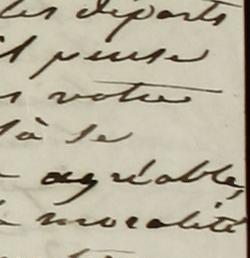 les départs
il pense
votre
là se
agréable,
moralité